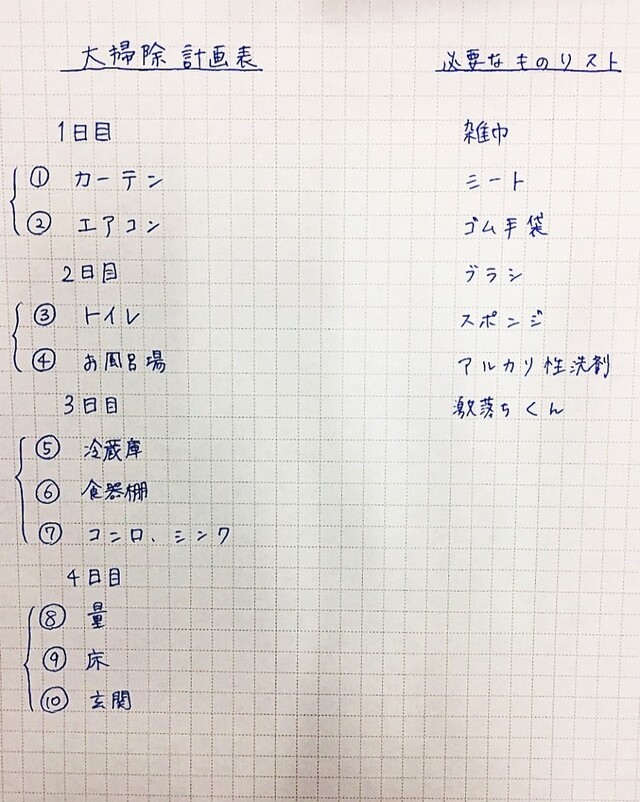 大掃除 計画表
1日目
① カーテン
② エアコン
2日目
③ トイレ
④ お風呂場
3日目
⑤ 冷蔵庫
⑥ 食器棚
⑦ コンロ、シンク
4日目
⑧ 量
⑨ 床
⑩ 玄関
必要なものリスト
雑巾
シート
ゴム手袋
ブラシ
スポンジ
アルカリ性洗剤
激落ちくん